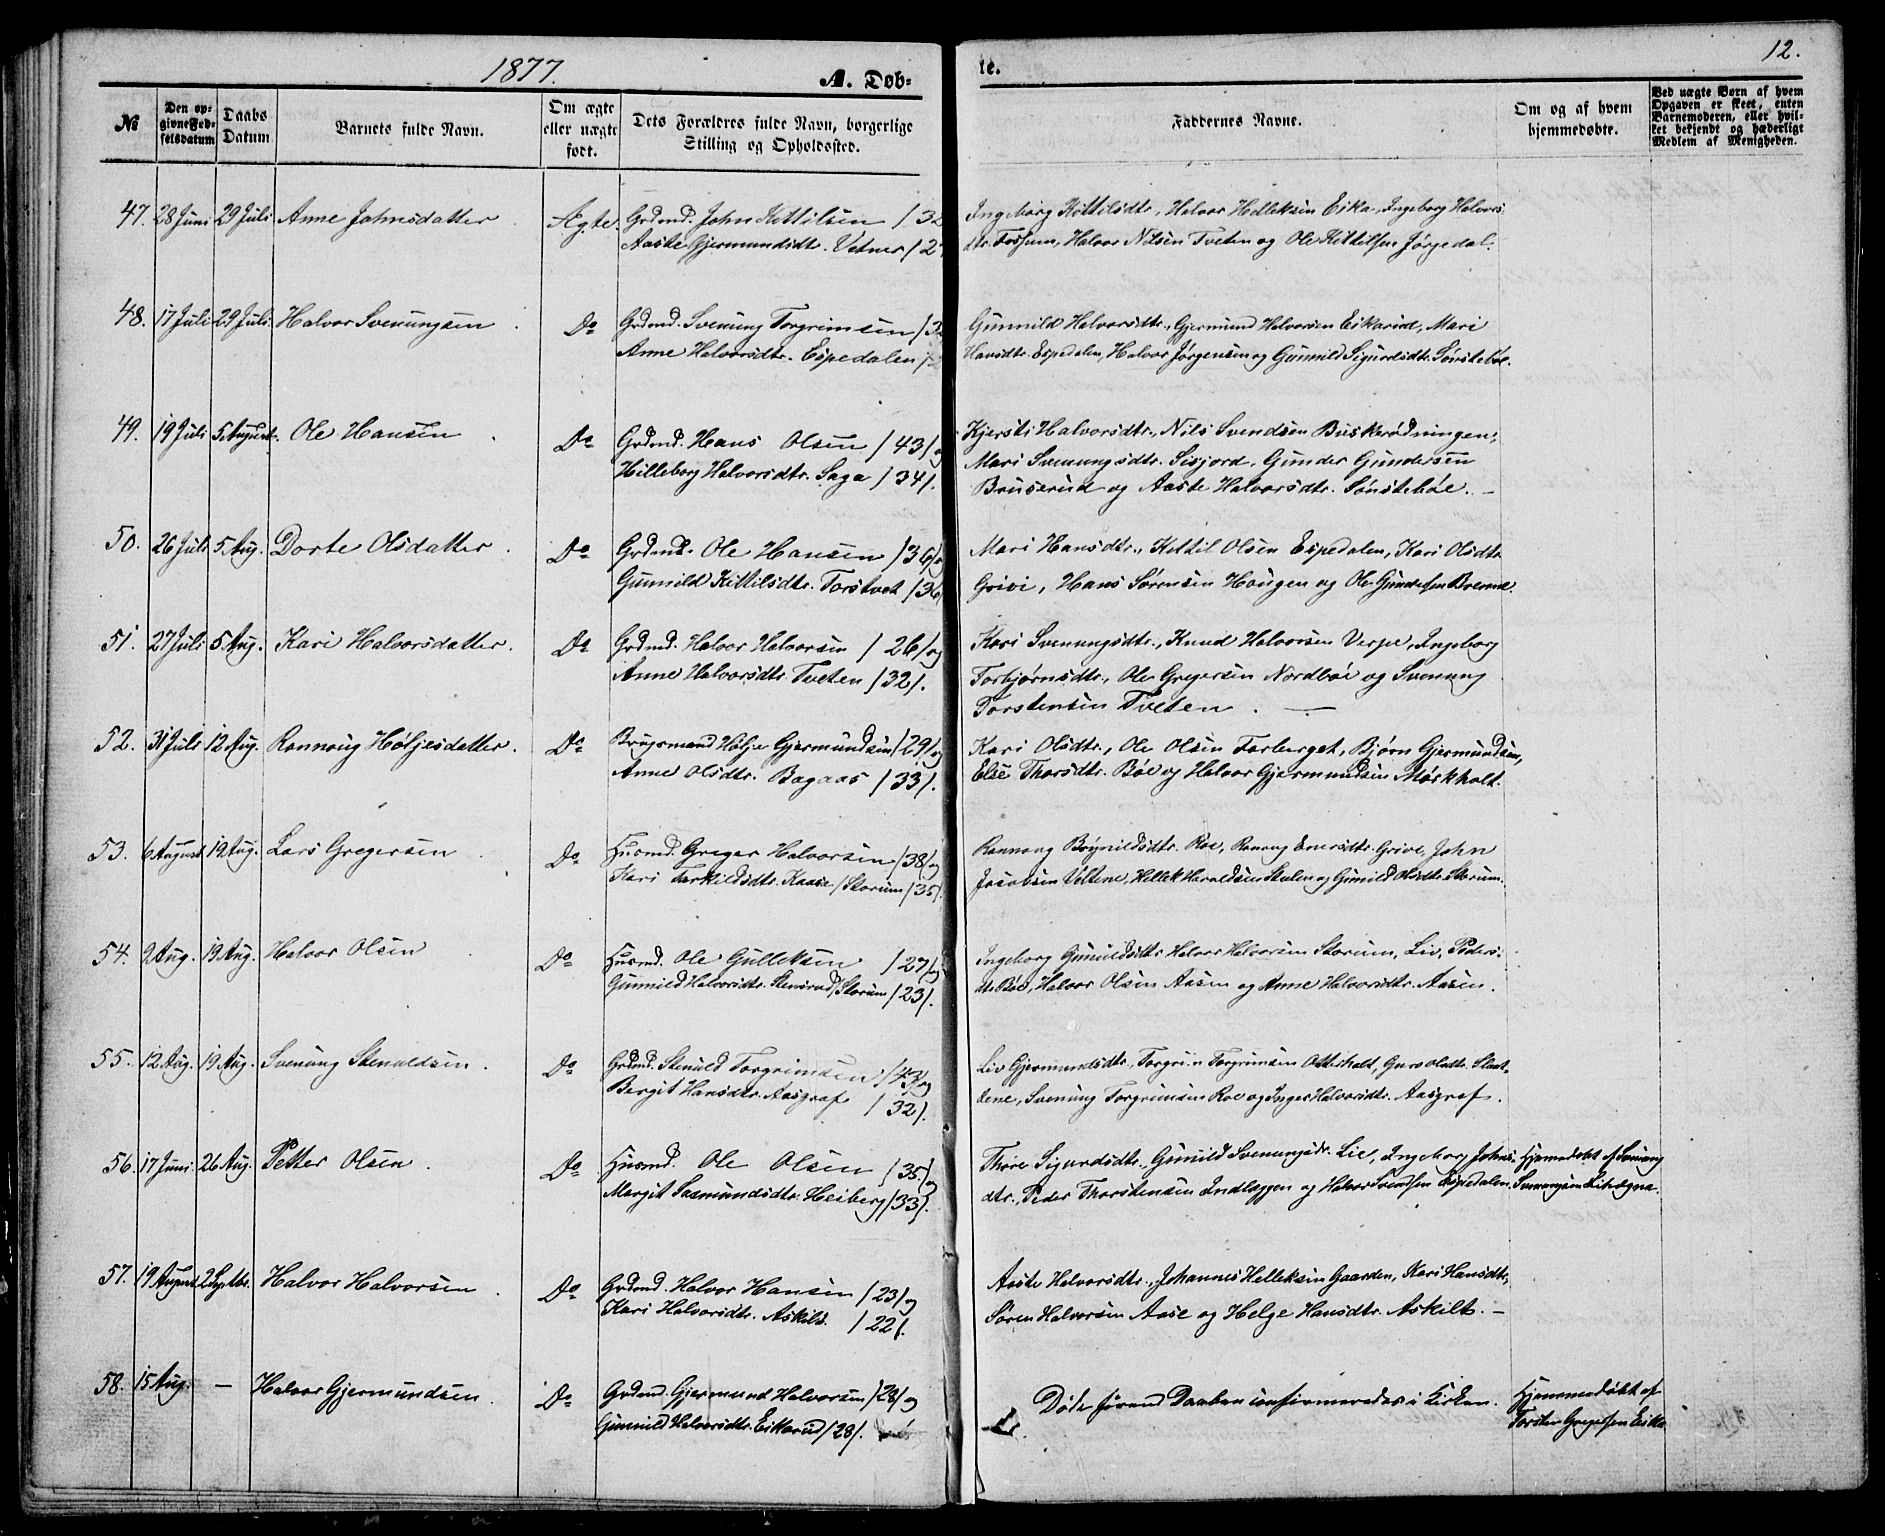 1877.
A. Døb-
te.
12.
№
Den op-
givne Fød-
selsdatum
Daabs
Datum.
Barnets fulde Navn.
Om ægte
eller uægte
født.
Dets Forældres fulde Navn, borgerlige
Stilling og Opholdssted.
Faddernes Navne.
Om og af hvem
hjemmedøbte.
Ved uægte Børn af hvem
Opgaven er skeet, enten
Barnemoderen, eller hvil-
ket bekjendt og hæderligt
Medlem af Menigheden.
47. 28 Juni 29 Juli Anne Johnsdatter Ægte. Grdmd. John Kittilsen /32
Aaste Gjermundsdtr. Vetner /2
Ingeborg Kittilsdtr., Halvor Helleksen Eika, Ingeborg Halvors-
dtr. Fossum, Halvor Nilsen Tveten og Ole Kittilsen Jørgedal.
48. 17 Juli 29 Juli. Halvor Svenungsen Do Grdmd. Svenung Torgrimsen /3
Anne Halvorsdtr. Espedalen /
Gunnild Halvorsdtr., Gjermund Halvorsen Eikarud, Mari
Hansdtr. Espedalen, Halvor Jørgensen og Gunnild Sigurdsdtr. Sønstebøe.
49. 19 Juli 5 August. Ole Hansen Do Grdmd. Hans Olsen /43/ og
Hilleborg Halvorsdtr. Saga /34/.
Kjersti Halvorsdtr., Nils Svendsen Buskerødningen,
Mari Svenungsdtr. Sisjord, Gunder Gundersen
Bruserud og Aaste Halvorsdtr. Sønstebøe. —
50. 26 Juli 5 Aug. Dorte Olsdatter. Do Grdmd. Ole Hansen /36/ og
Gunnild Kittilsdtr. Torstvet /36/
Mari Hansdtr., Kittil Olsen Espedalen, Kari Olsdtr.
Grivi, Hans Sørensen Haugen og Ole Gundersen Brenne.
51. 27 Juli 5 Aug. Kari Halvorsdatter. Do Grdmd. Halvor Halvorsen /26/ og
Anne Halvorsdtr. Tveten /32/.
Kari Svenungsdtr., Knud Halvorsen Verpe, Ingeborg
Torbjørnsdtr., Ole Gregersen Nordbøe og Svenung
Torstensen Tveten. —
52. 31 Juli 12 Aug. Rannoug Høljesdatter. Do Brugsmand Hølje Gjermundsen /29/ og
Anne Olsdtr. Bagaas /33/.
Kari Olsdtr., Ole Olsen Farberget, Bjørn Gjermundsen,
Else Thorsdtr. Bøe og Halvor Gjermundsen Mørkholt.
53. 6 August 19 Aug. Lars Gregersen Do Husmd. Greger Halvorsen /38/ og
Kari Terkildsdtr. Kaase/Storum /35/.
Rannoug Brynildsdtr. Roe, Ranoug Enersdtr. Grive, John
Jacobsen Veltene, Hellek Haroldsen Skulen og Gunild Olsdtr. Storum.
54. 9 Aug. 19 Aug. Halvor Olsen Do Husmd. Ole Gulleksen /27/ og
Gunnild Halvorsdtr. Stensrud/Storum /23/.
Ingeborg Gunuldsdtr. Halvor Halvorsen Storum, Liv Peders-
dtr. Bøe, Halvor Olsen Aasen og Anne Halvorsdtr. Aasen.
55. 12 Aug. 19 Aug. Svenung Stenuldsen. Do Grdmd. Stenuld Torgrimsen /43/ og
Bergit Hansdtr. Aasgraf /32/.
Liv Gjermundsdtr., Torgrim Torgrimsen Otterholt, Guro Olsdtr. Slaat-
tene, Svenung Torgrimsen Roe og Inger Halvorsdtr. Aasgraf.
56. 17 Juni. 26 Aug. Petter Olsen. Do Husmd. Ole Olsen /35/ og
Margit Sasmundsdtr. Heiberg /33/.
Thore Sigurdsdtr., Gunild Svenungsdr. Lie, Ingeborg Johns-
dtr., Peder Thorstensen Indlæggen og Halvor Svendsen Espedalen.
Hjemmedøbt af Svenung
Svenungsen Lihægna.
57. 19 August 2 Septbr. Halvor Halvorsen. Do Grdmd. Halvor Hansen /23/ og
Kari Halvorsdtr. Askilt. /22/.
Aaste Halvorsdtr., Johannes Helleksen Gaarden, Kari Hansdtr.,
Søren Halvorsen Aase og Helge Hansdtr. Askilt. —
58. 15 Aug. — Halvor Gjermundsen. Do Grdmd. Gjermund Halvorsen /28/ og
Gunnild Halvorsdtr. Eikarud /28/.
Døde førend Daaben confirmeredes i Kirken.
Hjemmedøbt af
Torsten Gregersen Eika